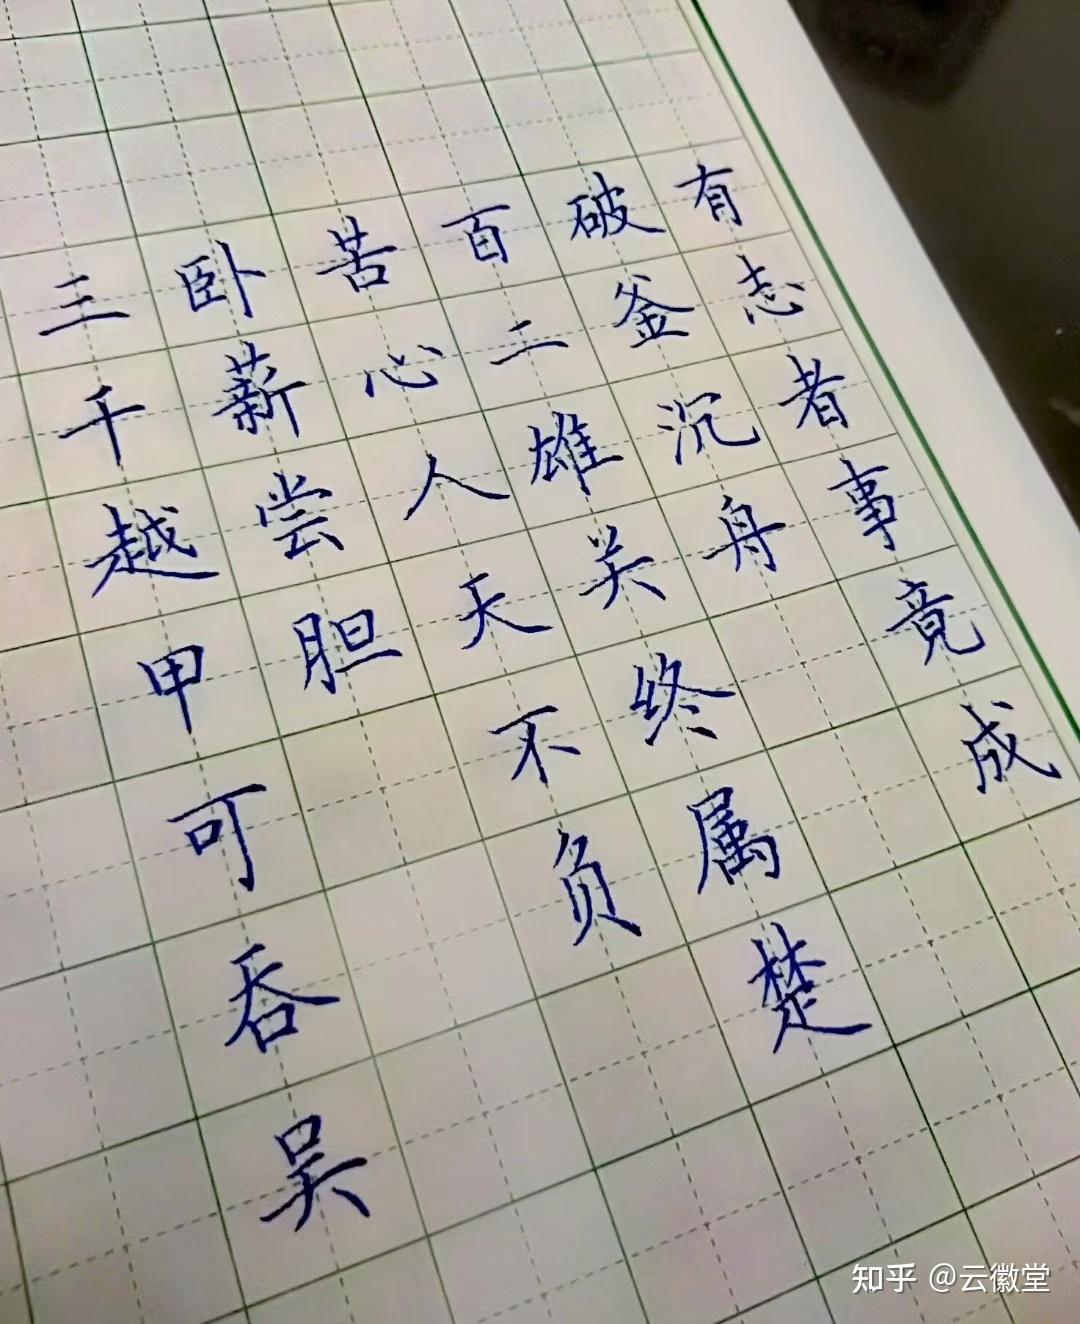 有志者事竟成
破釜沉舟
百二雄关终属楚
苦心人天不负
卧薪尝胆
三千越甲可吞吴
知乎 @云徽堂